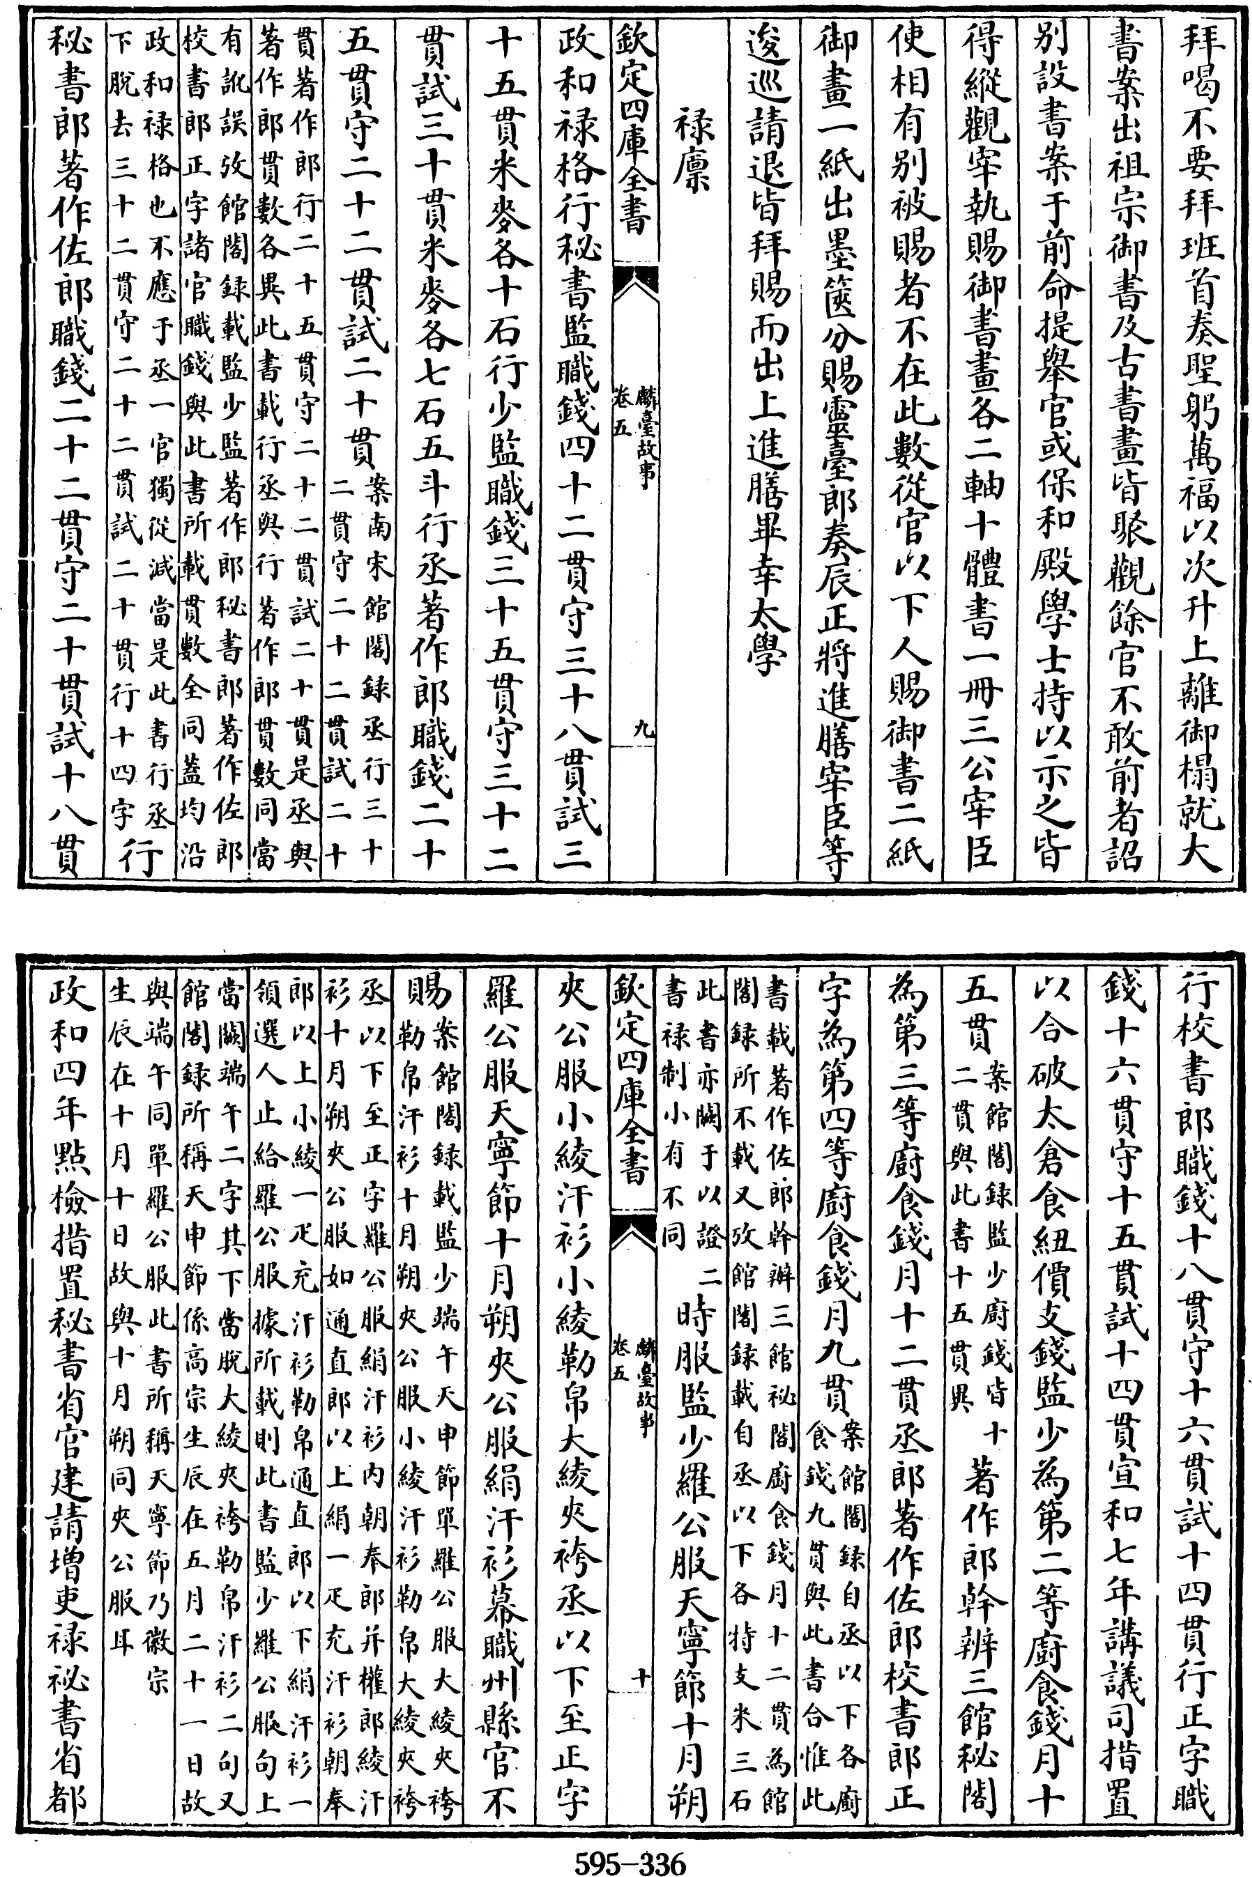 拜喝不要拜班首奏聖躬萬福以次升上離御榻就大
書案出祖宗御書及古書畫皆聚觀餘官不敢前者詔
別設書案于前命提舉官或保和殿學士持以示之皆
得縱觀宰執賜御書畫各二軸十體書一冊三公宰臣
使相有別被賜者不在此數從官以下人賜御書二紙
御畫一紙出墨篋分賜靈臺郎奏辰正將進膳宰臣等
逡巡請退皆拜賜而出上進膳畢幸太學
祿廩
欽定四庫全書
麟臺故事
卷五
九
政和祿格行秘書監職錢四十二貫守三十八貫試三
十五貫米麥各十石行少監職錢三十五貫守三十二
貫試三十貫米麥各七石五斗行丞著作郎職錢二十
五貫守二十二貫試二十貫
案南宋館閣録丞行三十
二貫守二十二貫試二十
貫著作郎行二十五貫守二十二貫試二十貫是丞與
著作郎貫數各異此書載行丞與行著作郎貫數同當
有訛誤攷館閣録載監少監著作郎秘書郎著作佐郎
校書郎正字諸官職錢與此書所載貫數全同蓋均沿
政和祿格也不應于丞一官獨從減當是此書行丞
下脫去三十二貫守二十二貫試二十貫行十四字
行
秘書郎著作佐郎職錢二十二貫守二十貫試十八貫
行校書郎職錢十八貫守十六貫試十四貫行正字職
錢十六貫守十五貫試十四貫宣和七年講議司措置
以合破太倉食紐價支錢監少為第二等廚食錢月十
五貫
案館閣錄監少廚錢皆十
二貫與此書十五貫異
著作郎幹辨三館秘閣
為第三等廚食錢月十二貫丞郎著作佐郎校書郎正
字為第四等廚食錢月九貫
案館閣録自丞以下各廚
食錢九貫與此書合惟此
書載著作佐郎幹辦三館秘閣廚食錢月十二貫為館
閣録所不載又攷館閣録載自丞以下各特支米三石
此書亦闕于以證二
書祿制小有不同
時服監少羅公服天寧節十月朔
欽定四庫全書
麟臺故事
卷五
十
夾公服小綾汗衫小綾勒帛大綾夾袴丞以下至正字
羅公服天寧節十月朔夾公服絹汗衫幕職州縣官不
賜
案館閣録載監少端午天申節單羅公服大綾夾袴
勒帛汗衫十月朔夾公服小綾汗衫勒帛大綾夾袴
丞以下至正字羅公服絹汗衫内朝奉郎并權郎綾汗
衫十月朔夾公服如通直郎以上絹一疋充汗衫朝奉
郎以上小綾一疋充汗衫勒帛通直郎以下絹汗衫一
領選人止給羅公服據所載則此書監少羅公服句上
當闕端午二字其下當脫大綾夾袴勒帛汗衫二句又
館閣録所稱天申節係高宗生辰在五月二十一日故
與端午同單羅公服此書所稱天寧節乃徽宗
生辰在十月十日故與十月朔同夾公服耳
政和四年點檢措置秘書省官建請增吏祿秘書省都
595-336